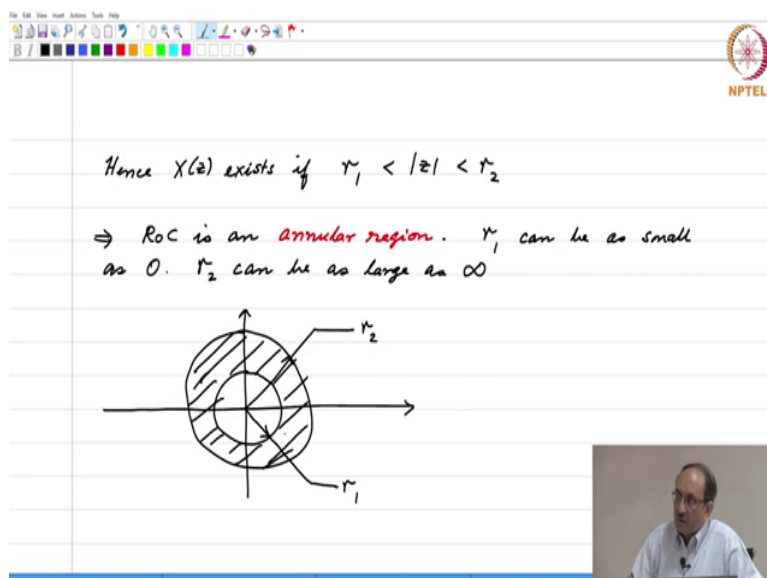 File Edit View Insert Actions Tools Help
B I
NPTEL
Hence X(z) exists if r₁ < |z| < r₂
⇒ RoC is an annular region. r₁ can be as small
as 0. r₂ can be as large as ∞
r₂
r₁